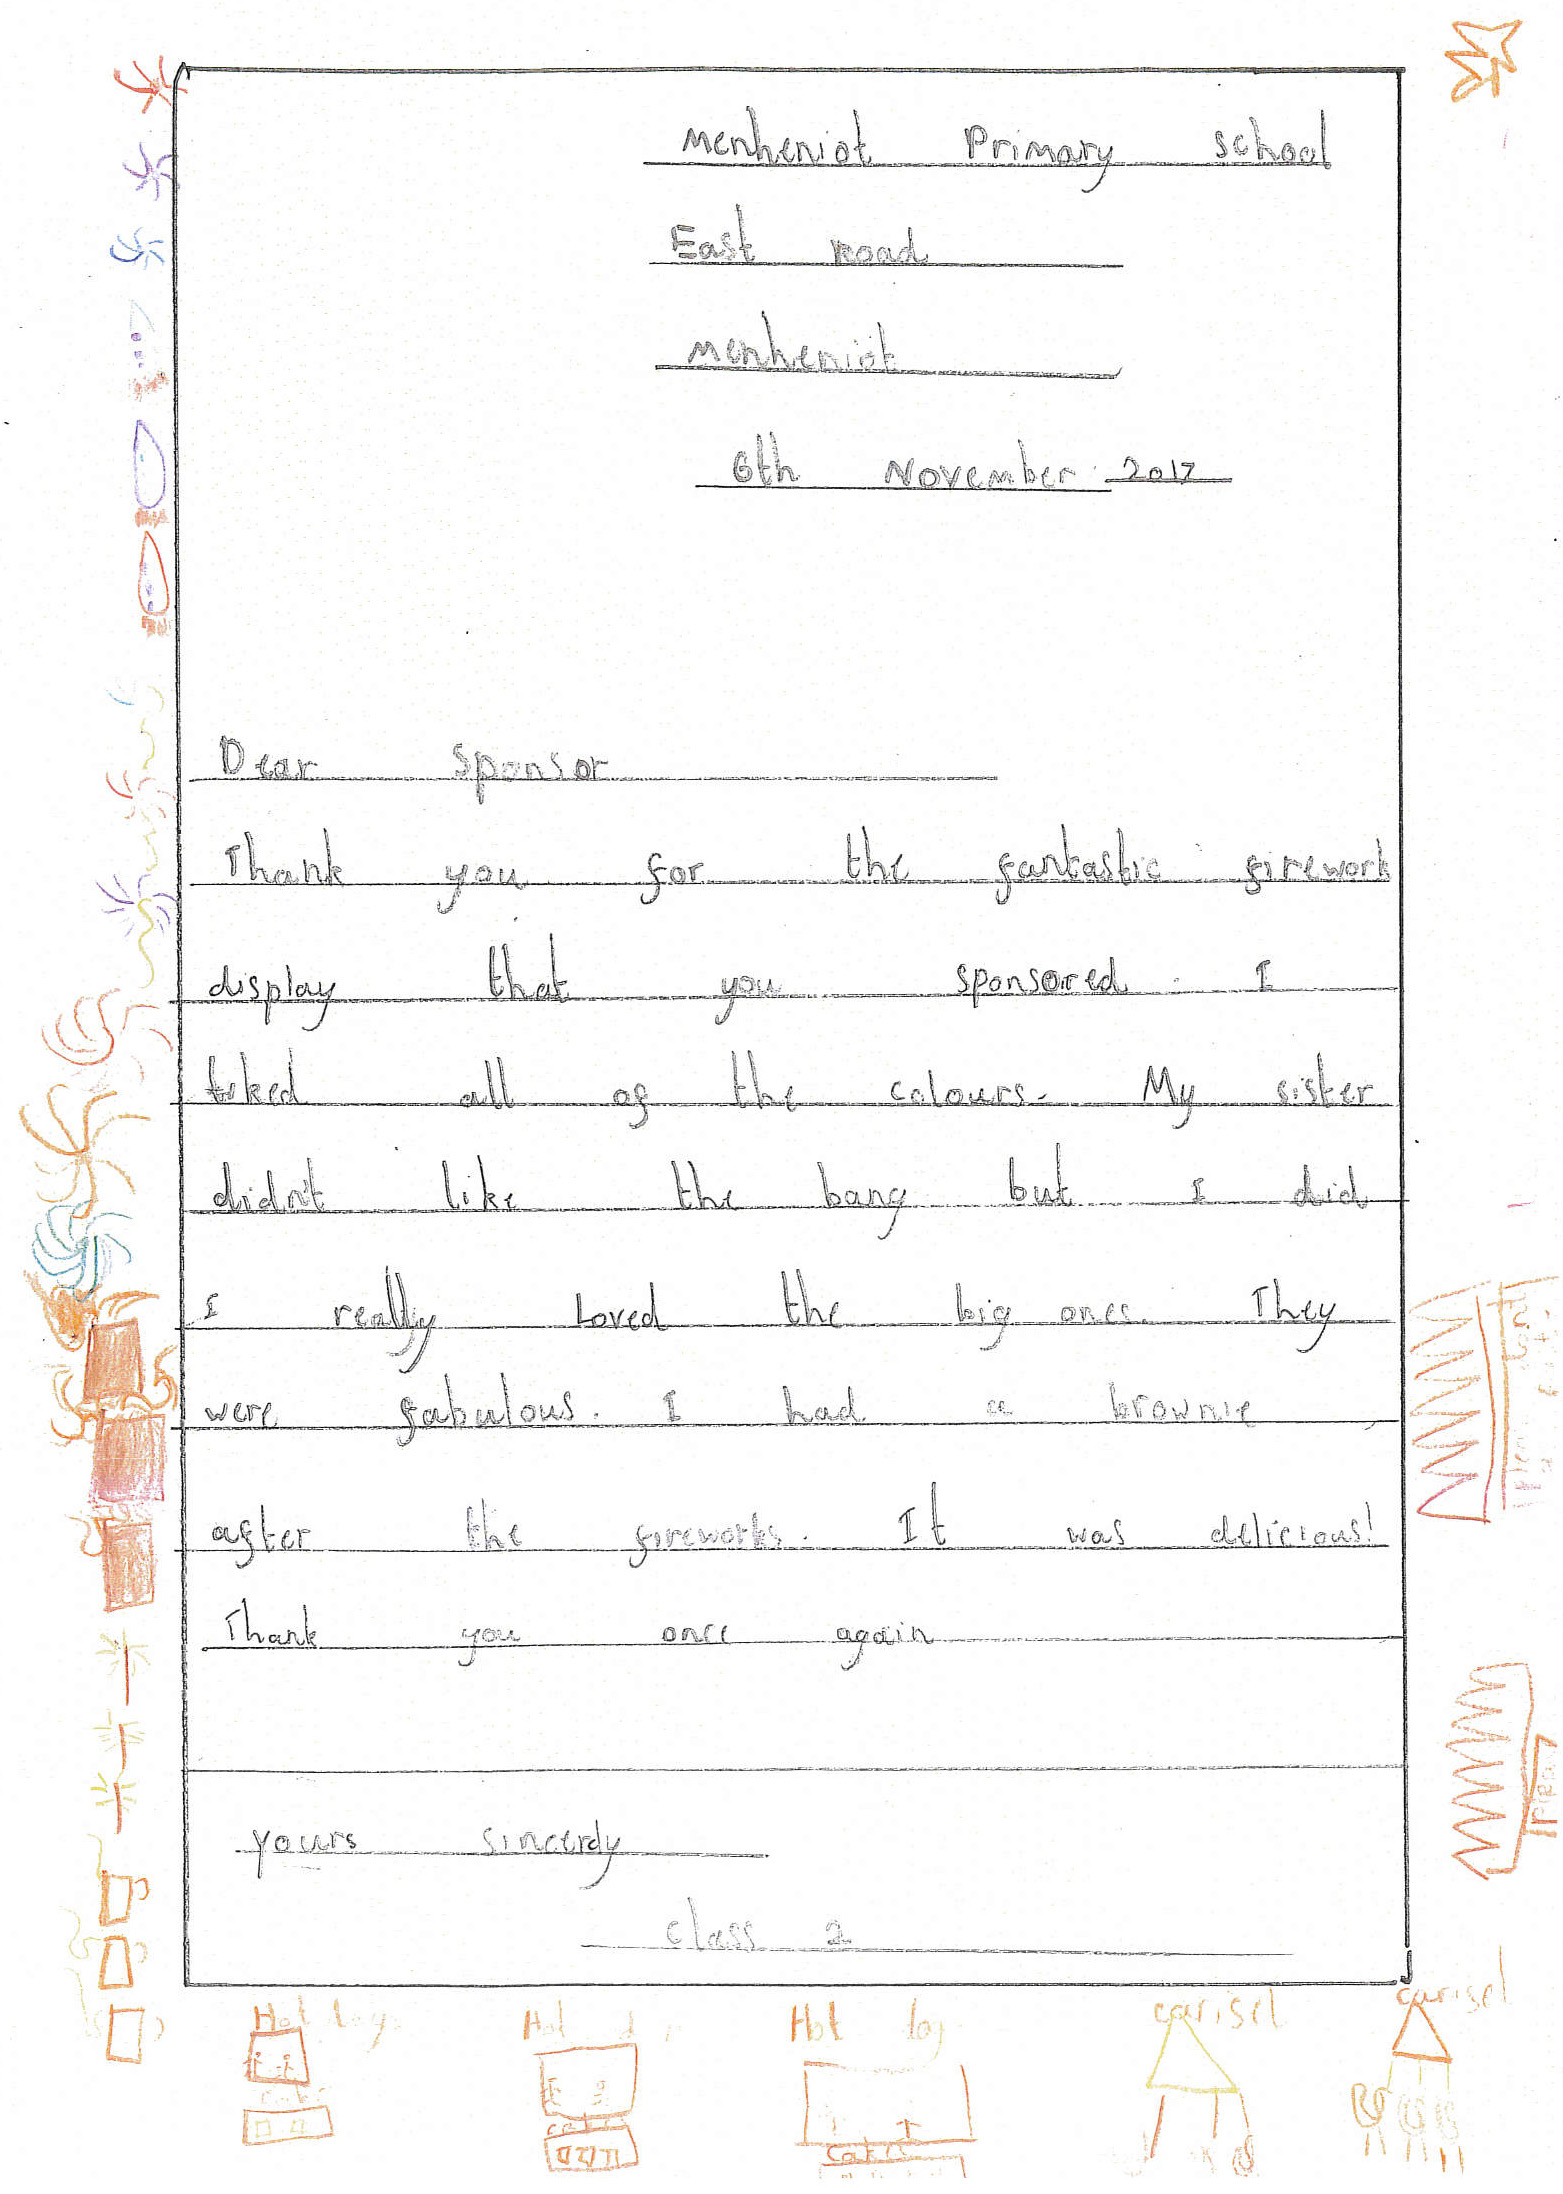 Menheniot Primary School
East Road
Menheniot
6th November 2017
Dear Sponsor
Thank you for the fantastic firework
display that you sponsored. I
liked all of the colours. My sister
didn't like the bang but I did
I really Loved the big ones. They
were fabulous. I had a brownie
after the fireworks. It was delicious!
Thank you once again
yours sincerly
class 2
Hot dog Hot d Hot dog carisel carisel
cake cake cakes